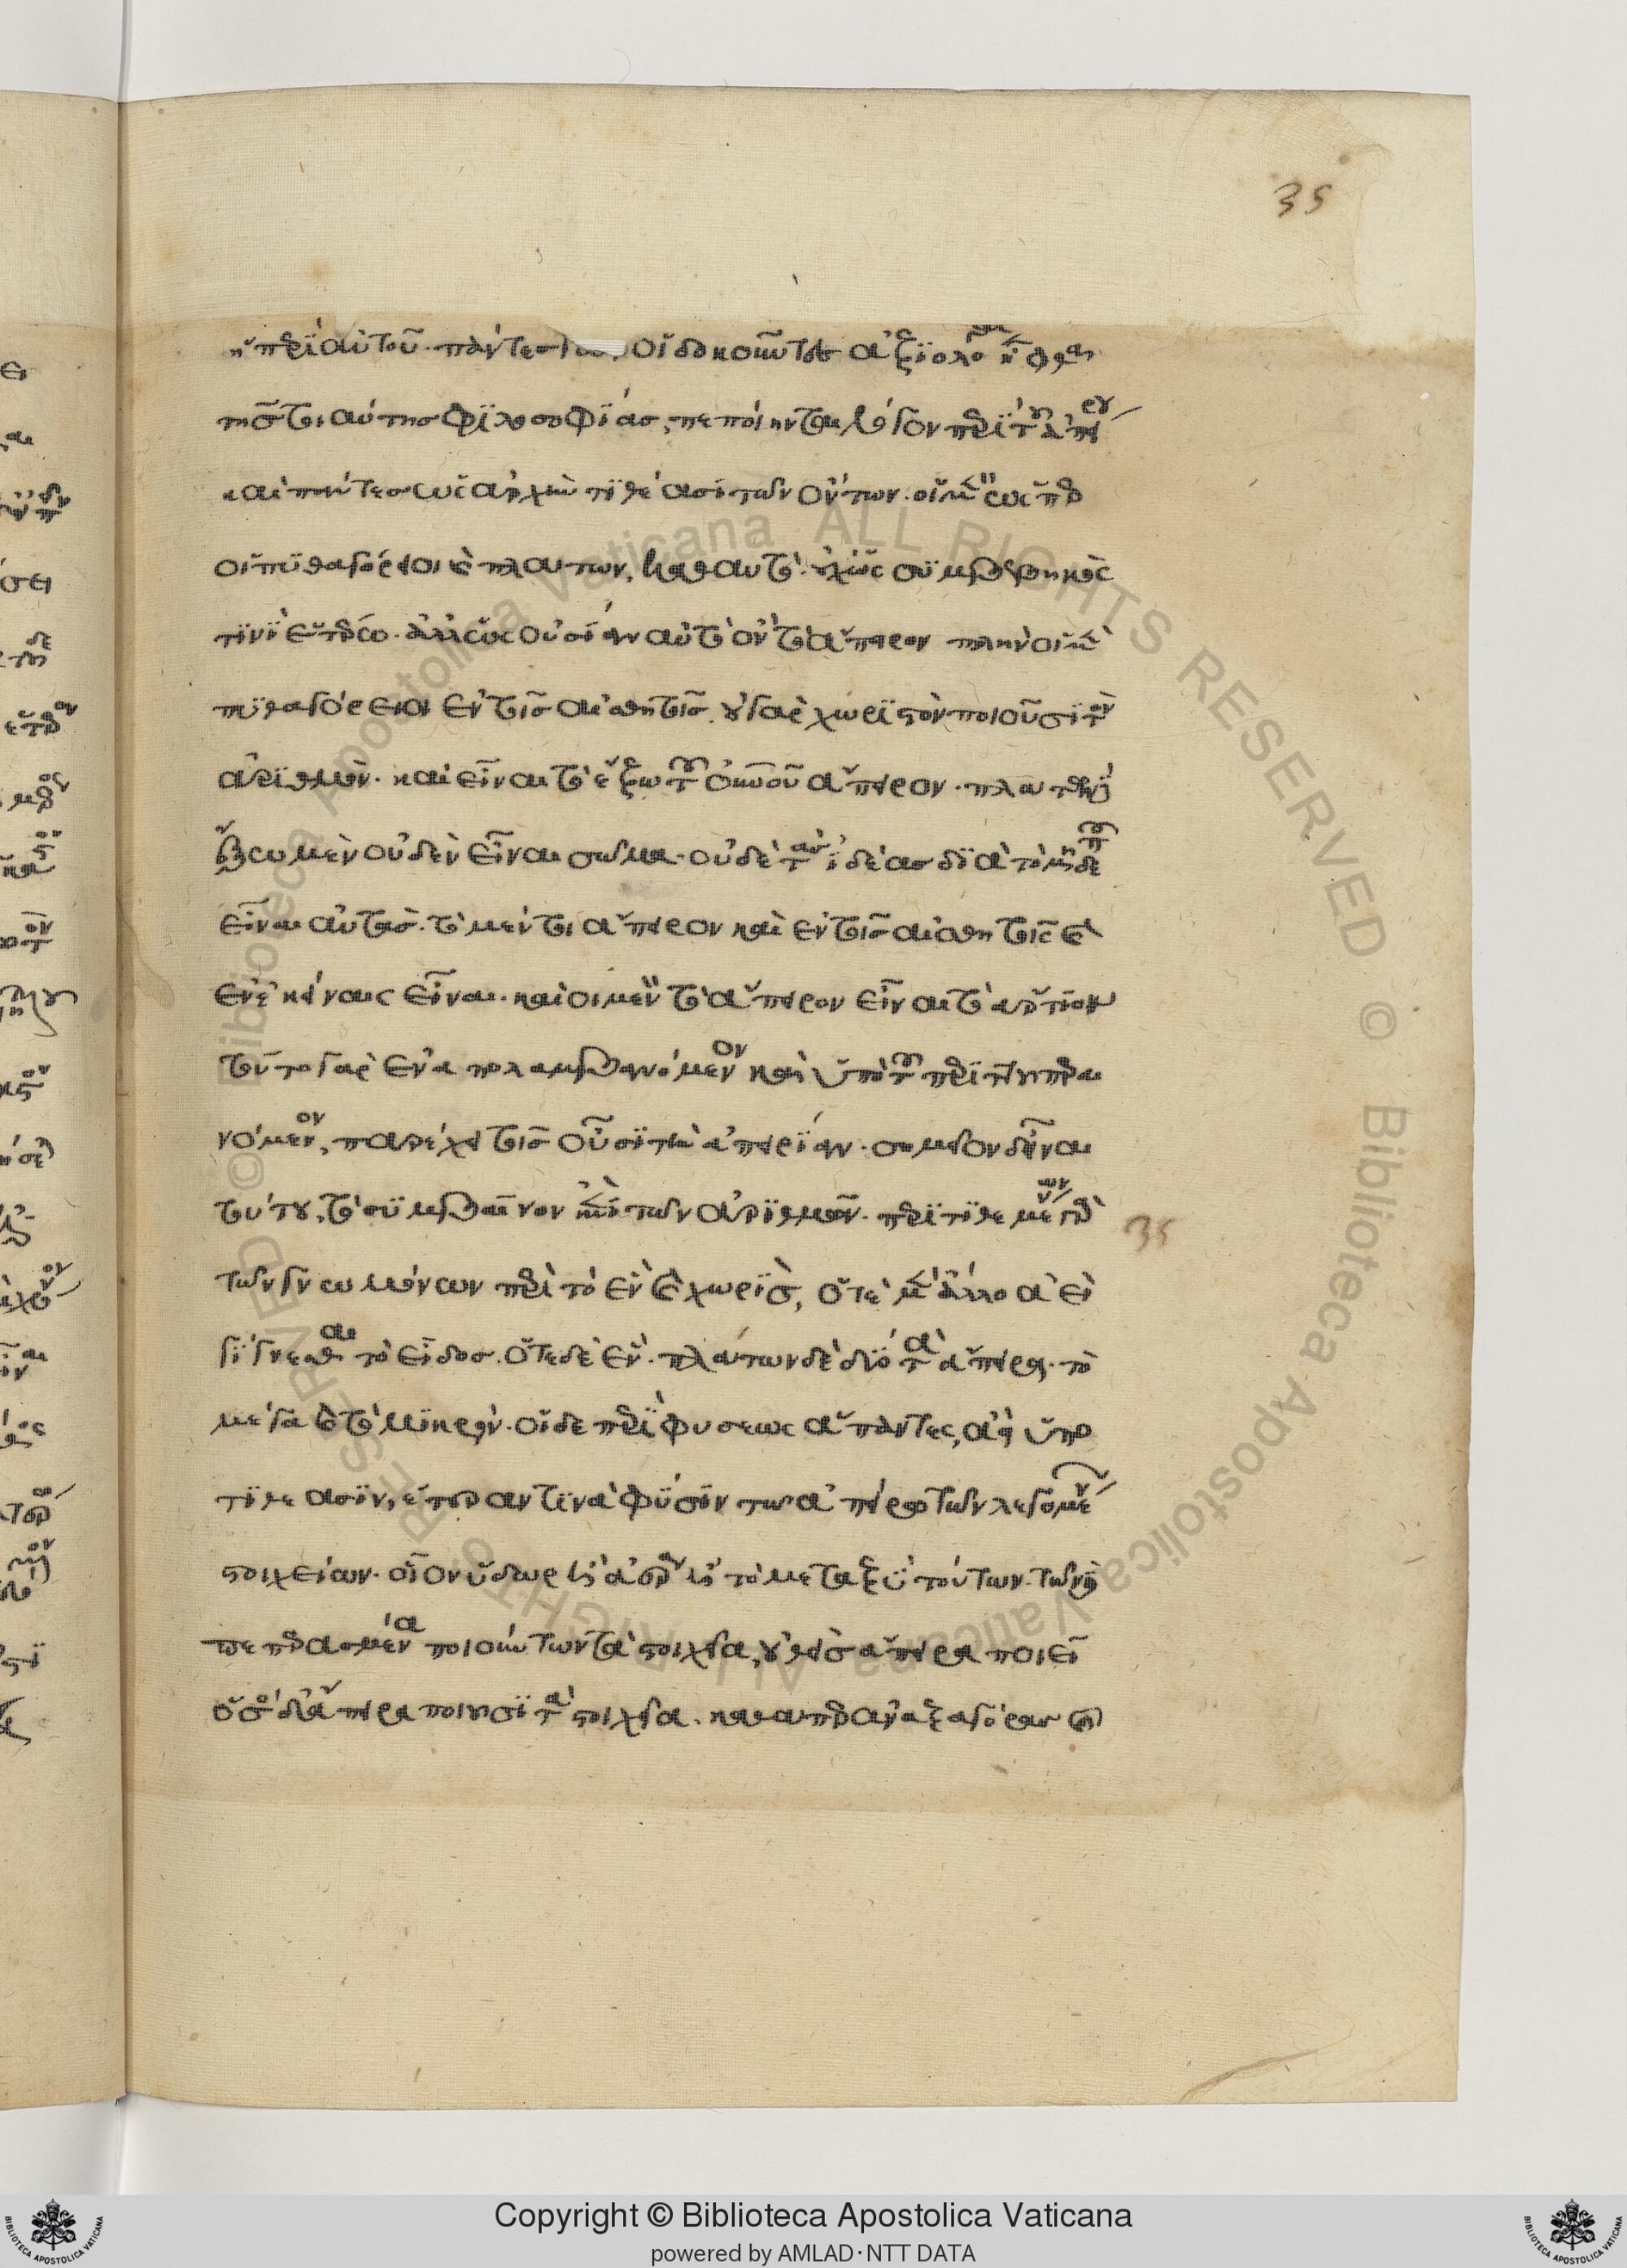 ἡ περὶ αὐτοῦ. πάντες οἱ δοκοῦντες ἀξιολόγως ἧφθαι
τῆς τοιαύτης φιλοσοφίας, πεποίηνται λόγον περὶ τοῦ ἀπείρου
καὶ πάντες ὡς ἀρχὴν τιθέασι τῶν ὄντων. οἱ μὲν ὥσπερ
οἱ πυθαγόρειοι καὶ πλάτων, καθ αὑτό. οὐχ ὡς συμβεβηκὸς
τινὶ ἑτέρῳ. ἀλλ ὡς οὐσίαν αὐτὸ ὂν τὸ ἄπειρον πλὴν οἱ μὲν
πυθαγόρειοι ἐν τοῖς αἰσθητοῖς. οὐ γὰρ χωριστὸν ποιοῦσι τὸν
ἀριθμόν. καὶ εἶναι τὸ ἔξω τοῦ οὐρανοῦ ἄπειρον. πλάτων δὲ
ἔξω μὲν οὐδὲν εἶναι σῶμα. οὐδὲ τὰς ἰδέας διὰ τὸ μηδέ που
εἶναι αὐτάς. τὸ μέντοι ἄπειρον καὶ ἐν τοῖς αἰσθητοῖς καὶ
ἐν ἐκείναις εἶναι. καὶ οἱ μὲν τὸ ἄπειρον εἶναι τὸ ἄρτιον
τοῦτο γὰρ ἐναπολαμβανόμενον καὶ ὑπὸ τοῦ περιττοῦ περαι
νόμενον, παρέχει τοῖς οὖσι τὴν ἀπειρίαν. σημεῖον δ εἶναι
τούτου, τὸ συμβαῖνον ἐπὶ τῶν ἀριθμῶν. περιτιθεμένων γὰρ
τῶν γνωμόνων περὶ τὸ ἓν καὶ χωρίς, ὁτὲ μὲν ἄλλο ἀεὶ
γίγνεσθαι τὸ εἶδος. ὁτὲ δὲ ἕν. πλάτων δὲ δύο τὰ ἄπειρα. τὸ
μέγα καὶ τὸ μικρόν. οἱ δὲ περὶ φύσεως ἅπαντες, ἀεὶ ὑπο
τιθέασιν, ἑτέραν τινὰ φύσιν τῷ ἀπείρῳ τῶν λεγομένων
στοιχείων. οἷον ὕδωρ ἢ ἀέρα ἢ τὸ μεταξὺ τούτων. τῶν δὲ
πεπερασμένα ποιούντων τὰ στοιχεῖα, οὐθεὶς ἄπειρα ποιεῖ
ὅσοι δ ἄπειρα ποιοῦσι τὰ στοιχεῖα. καθάπερ ἀναξαγόρας καὶ
35
35
Copyright © Biblioteca Apostolica Vaticana
powered by AMLAD·NTT DATA